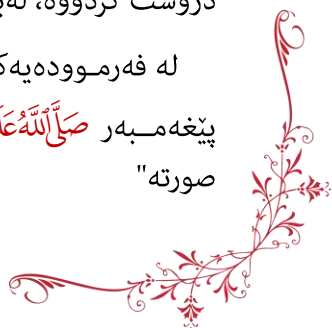 دروست کردووە، لەب
لە فەرمـوودەیەک
پێغەمــبەر صَلَّى ٱللَّهُ عَلَ
صورته"